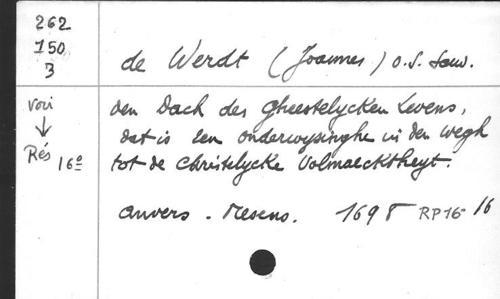 262
150
3
de Werdt (Joannes) O.S. Sauv.
voir
↓
Rés 16º
den Dach des Gheestelycken Levens,
dat is een onderwysinghe in den wegh
tot de Christelycke Volmaecktheyt.
Anvers. Mesens. 1698 RP16 16